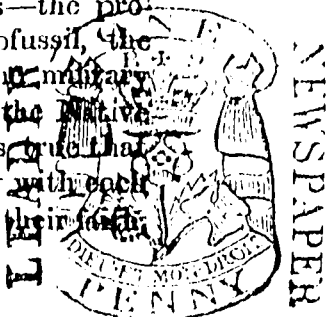 s—the pro-
ofussil, the
military
the Native
s true that
with each
their faith.
LEADER
NEWSPAPER
ONE
DIEU ET MON DROIT
PENNY